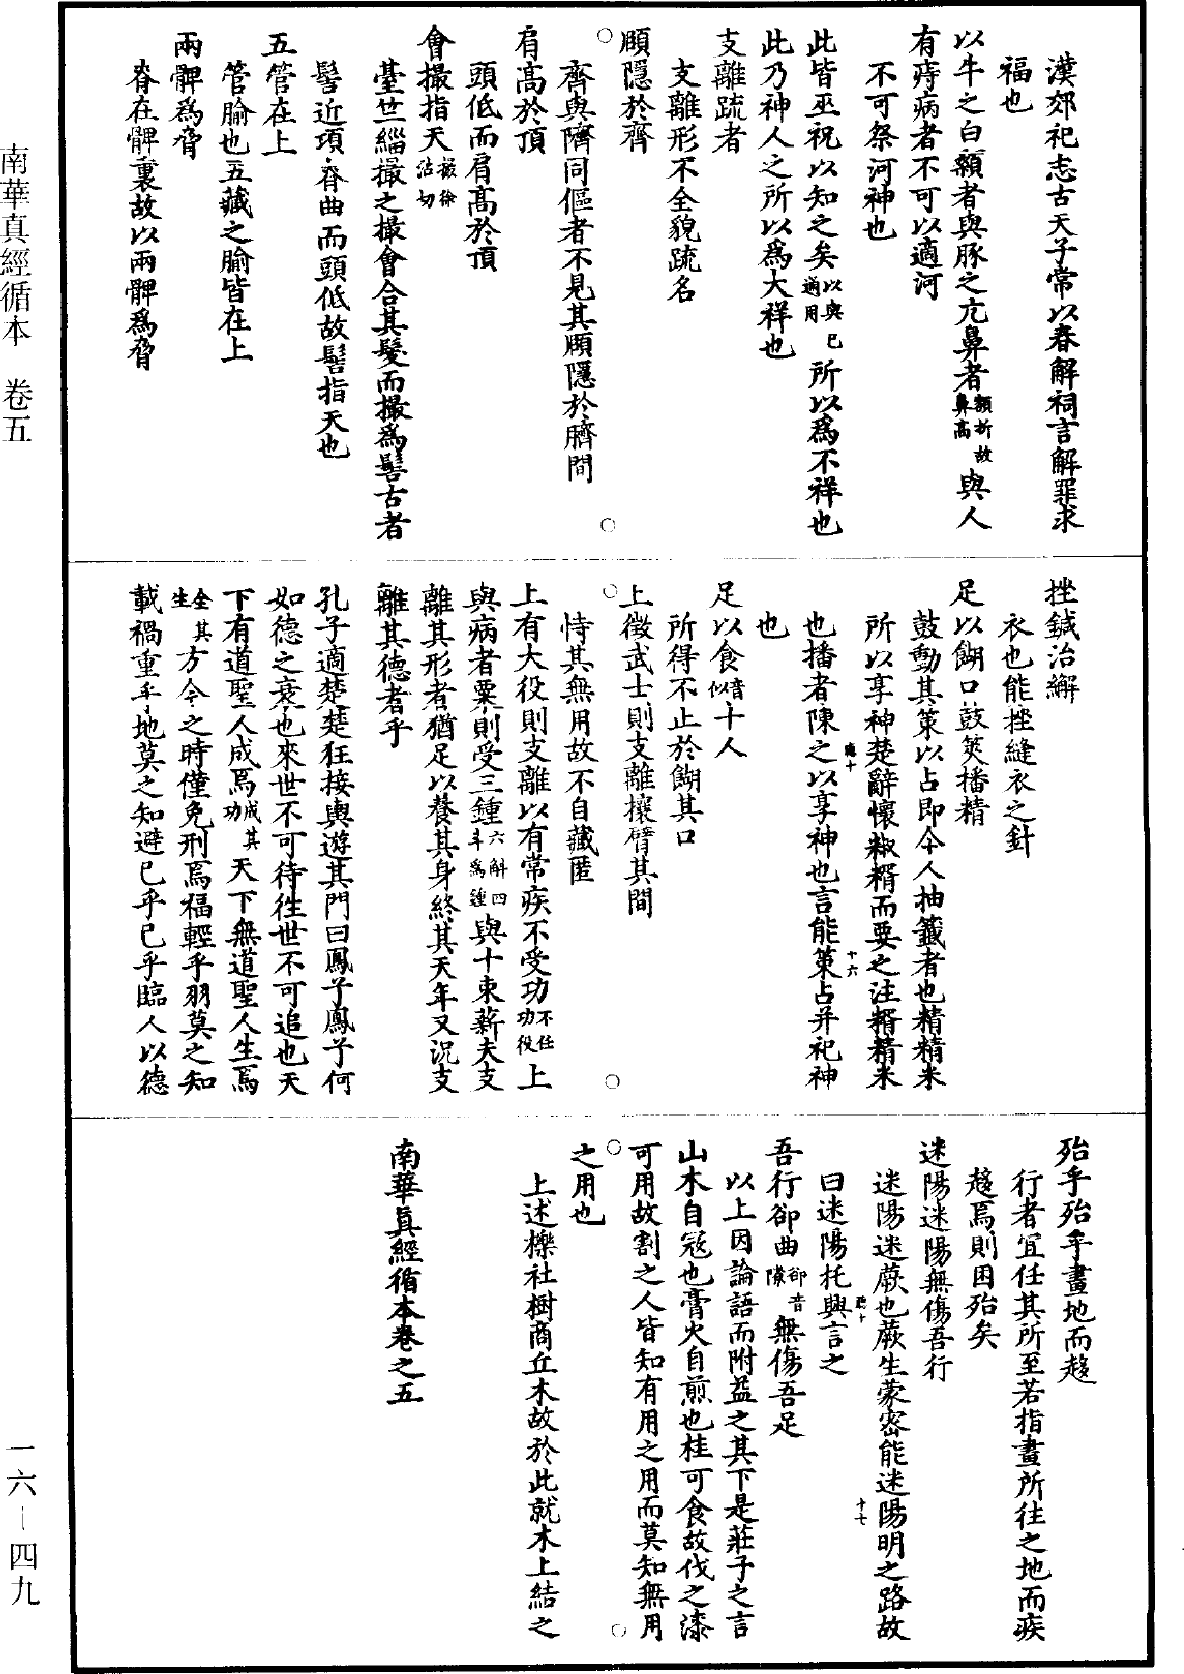 漢郊祀志古天子常以春解祠言解罪求
福也
以牛之白顙者與豚之亢鼻者額折故鼻高與人
有痔病者不可以適河
不可祭河神也
此皆巫祝以知之矣以與已通用所以為不祥也
此乃神人之所以為大祥也
支離疏者
支離形不全貌疏名
頤隱於齊
齊與臍同傴者不見其頤隱於臍間
肩高於頂
頭低而肩高於頂
會撮指天撮徐活切
臺笠緇撮之撮會合其髮而撮為髻古者
髻近項脊曲而頭低故髻指天也
五管在上
管腧也五藏之腧皆在上
兩髀為脅
脊在髀裏故以兩髀為脅
挫鍼治繲
衣也能挫縫衣之針
足以餬口鼓筴播精
鼓動其策以占即今人抽籤者也精精米
所以享神楚辭懷椒糈而要之注糈精米
也播者陳之以享神也言能策占并祀神
也
足以食音似十人
所得不止於餬其口
上徵武士則支離攘臂其間
恃其無用故不自藏匿
上有大役則支離以有常疾不受功不任功役上
與病者粟則受三鍾六斛四斗為鍾與十束薪夫支
離其形者猶足以養其身終其天年又況支
離其德者乎
孔子適楚楚狂接輿遊其門曰鳳兮鳳兮何
如德之衰也來世不可待往世不可追也天
下有道聖人成焉成其功天下無道聖人生焉
全其生方今之時僅免刑焉福輕乎羽莫之知
載禍重乎地莫之知避已乎已乎臨人以德
殆乎殆乎畫地而趍
行者宜任其所至若指畫所往之地而疾
趍焉則困殆矣
迷陽迷陽無傷吾行
迷陽迷蕨也蕨生蒙密能迷陽明之路故
曰迷陽托興言之
吾行卻曲卻音隙無傷吾足
以上因論語而附益之其下是莊子之言
山木自寇也膏火自煎也桂可食故伐之漆
可用故割之人皆知有用之用而莫知無用
之用也
上述櫟社樹商丘木故於此就木上結之
南華真經循本卷之五
南華真經循本　卷五
一六—四九